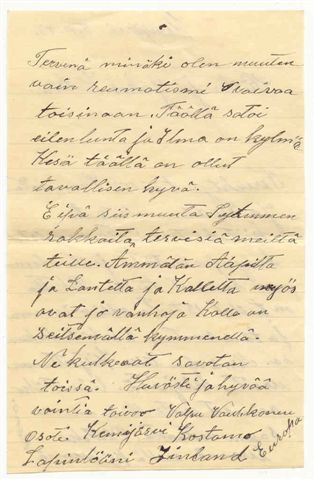 Tervenä minäki olen muuten
vain reumatismi vaivaa
toisinaan. Täällä satoi
eilen lunta ja Ilma on kylmä
Kesä täällä on ollut
tavallisen hyvä.
Eipä siis muuta Sydammen
rakkaita terveisiä meiltä
teille. Ammälän Aapilta
ja Santetta ja Kalletta myös
ovat jo vanhoja Kalla on
seitsemällä kymmenellä.
Ne kulkevat savotan
töissä. Hauvosti ja hyvää
vointia toivoo Valpu
Osote Kemijärvi Kostamo
Lapinlääni Finland Europa